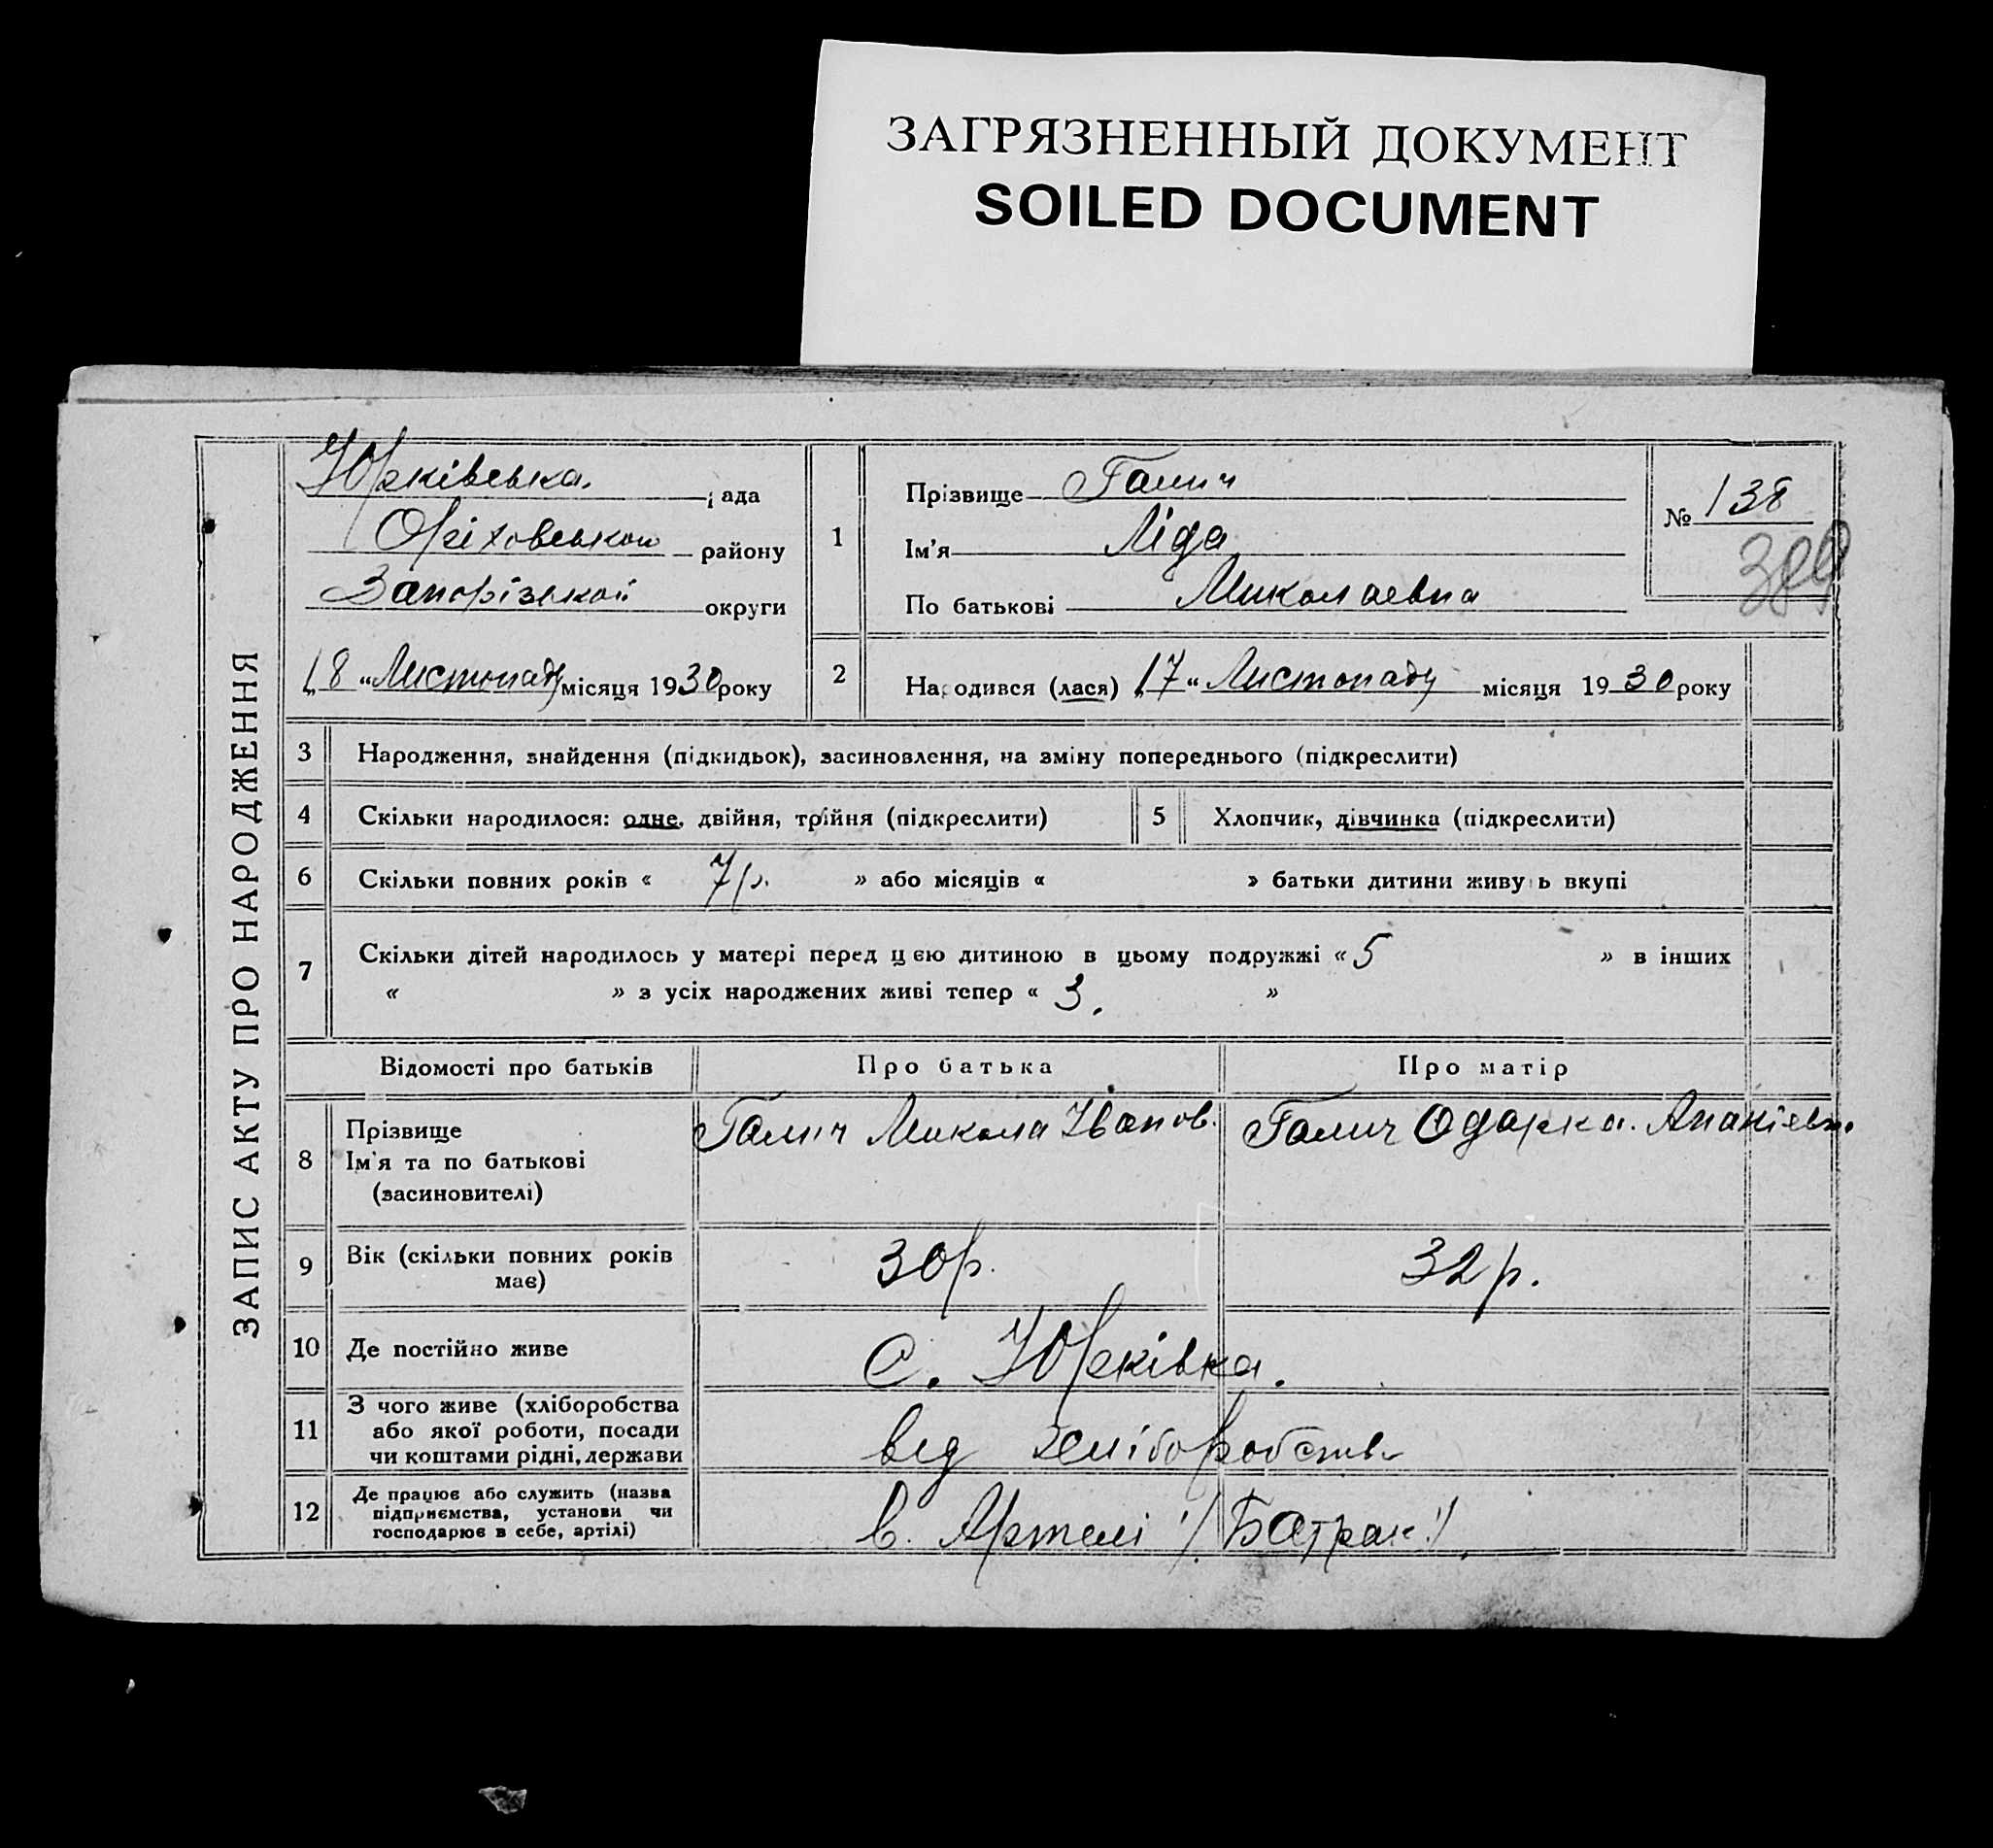 ЗАГРЯЗНЕННЫЙ ДОКУМЕНТ
SOILED DOCUMENT
ЗАПИС АКТУ ПРО НАРОДЖЕННЯ
Юрківська рада
Оріховської району
Запорізької округи
„18“ Листопаду місяця 1930 року
1
Прізвище Галич
Ім'я Ліда
По батькові Миколаевна
№ 138
2 Народився (лася) „17“ Листопаду місяця 1930 року
3 Народження, знайдення (підкидьок), засиновлення, на зміну попереднього (підкреслити)
4 Скільки народилося: одне, двійня, трійня (підкреслити) 5 Хлопчик, дівчинка (підкреслити)
6 Скільки повних років « 7 р. » або місяців « » батьки дитини живуть вкупі
7 Скільки дітей народилось у матері перед цією дитиною в цьому подружжі « 5 » в інших
« » з усіх народжених живі тепер « 3. »
Відомості про батьків Про батька Про матір
8 Прізвище
Ім'я та по батькові
(засиновителі)
Галич Микола Іванов. Галич Одарка. Ананіевн.
9 Вік (скільки повних років
має)
30 р. 32 р.
10 Де постійно живе с. Юрківка.
11 З чого живе (хліборобства
або якої роботи, посади
чи коштами рідні, держави
від хліборобства
12 Де працює або служить (назва
підприємства, установи чи
господарює в себе, артілі)
в. Артелі /Батрак/.